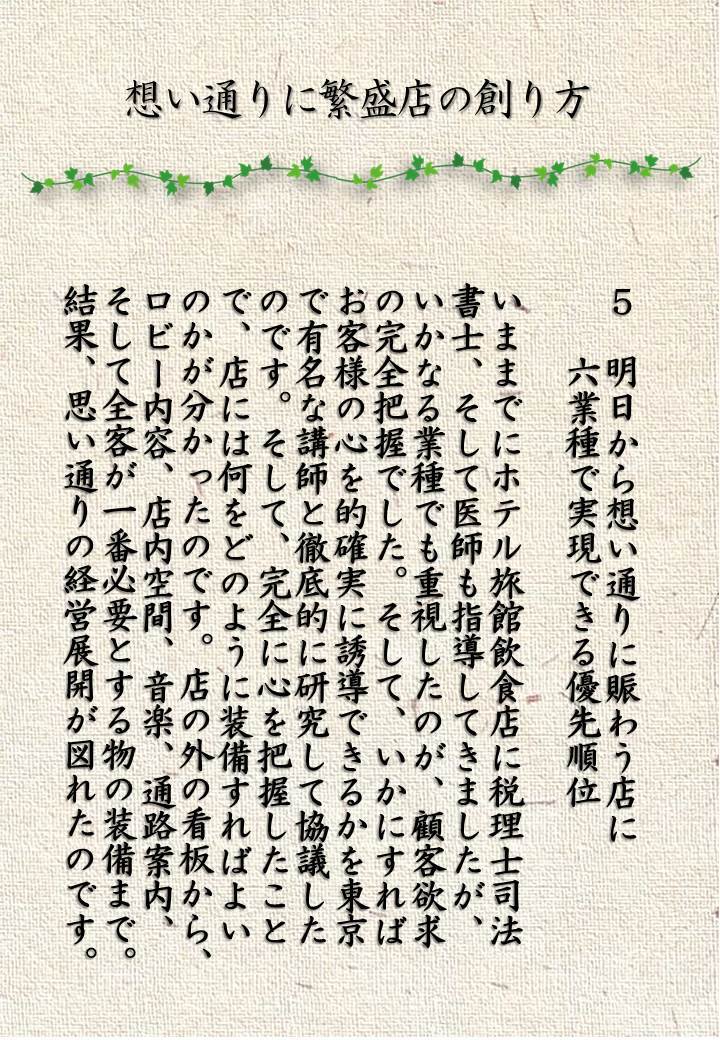 想い通りに繁盛店の創り方
5　明日から想い通りに賑わう店に
六業種で実現できる優先順位
いままでにホテル旅館飲食店に税理士司法
書士、そして医師も指導してきましたが、
いかなる業種でも重視したのが、顧客欲求
の完全把握でした。そして、いかにすれば
お客様の心を的確実に誘導できるかを東京
で有名な講師と徹底的に研究して協議した
のです。そして、完全に心を把握したこと
で、店には何をどのように装備すればよい
のかが分かったのです。店の外の看板から、
ロビー内容、店内空間、音楽、通路案内、
そして全客が一番必要とする物の装備まで。
結果、思い通りの経営展開が図れたのです。